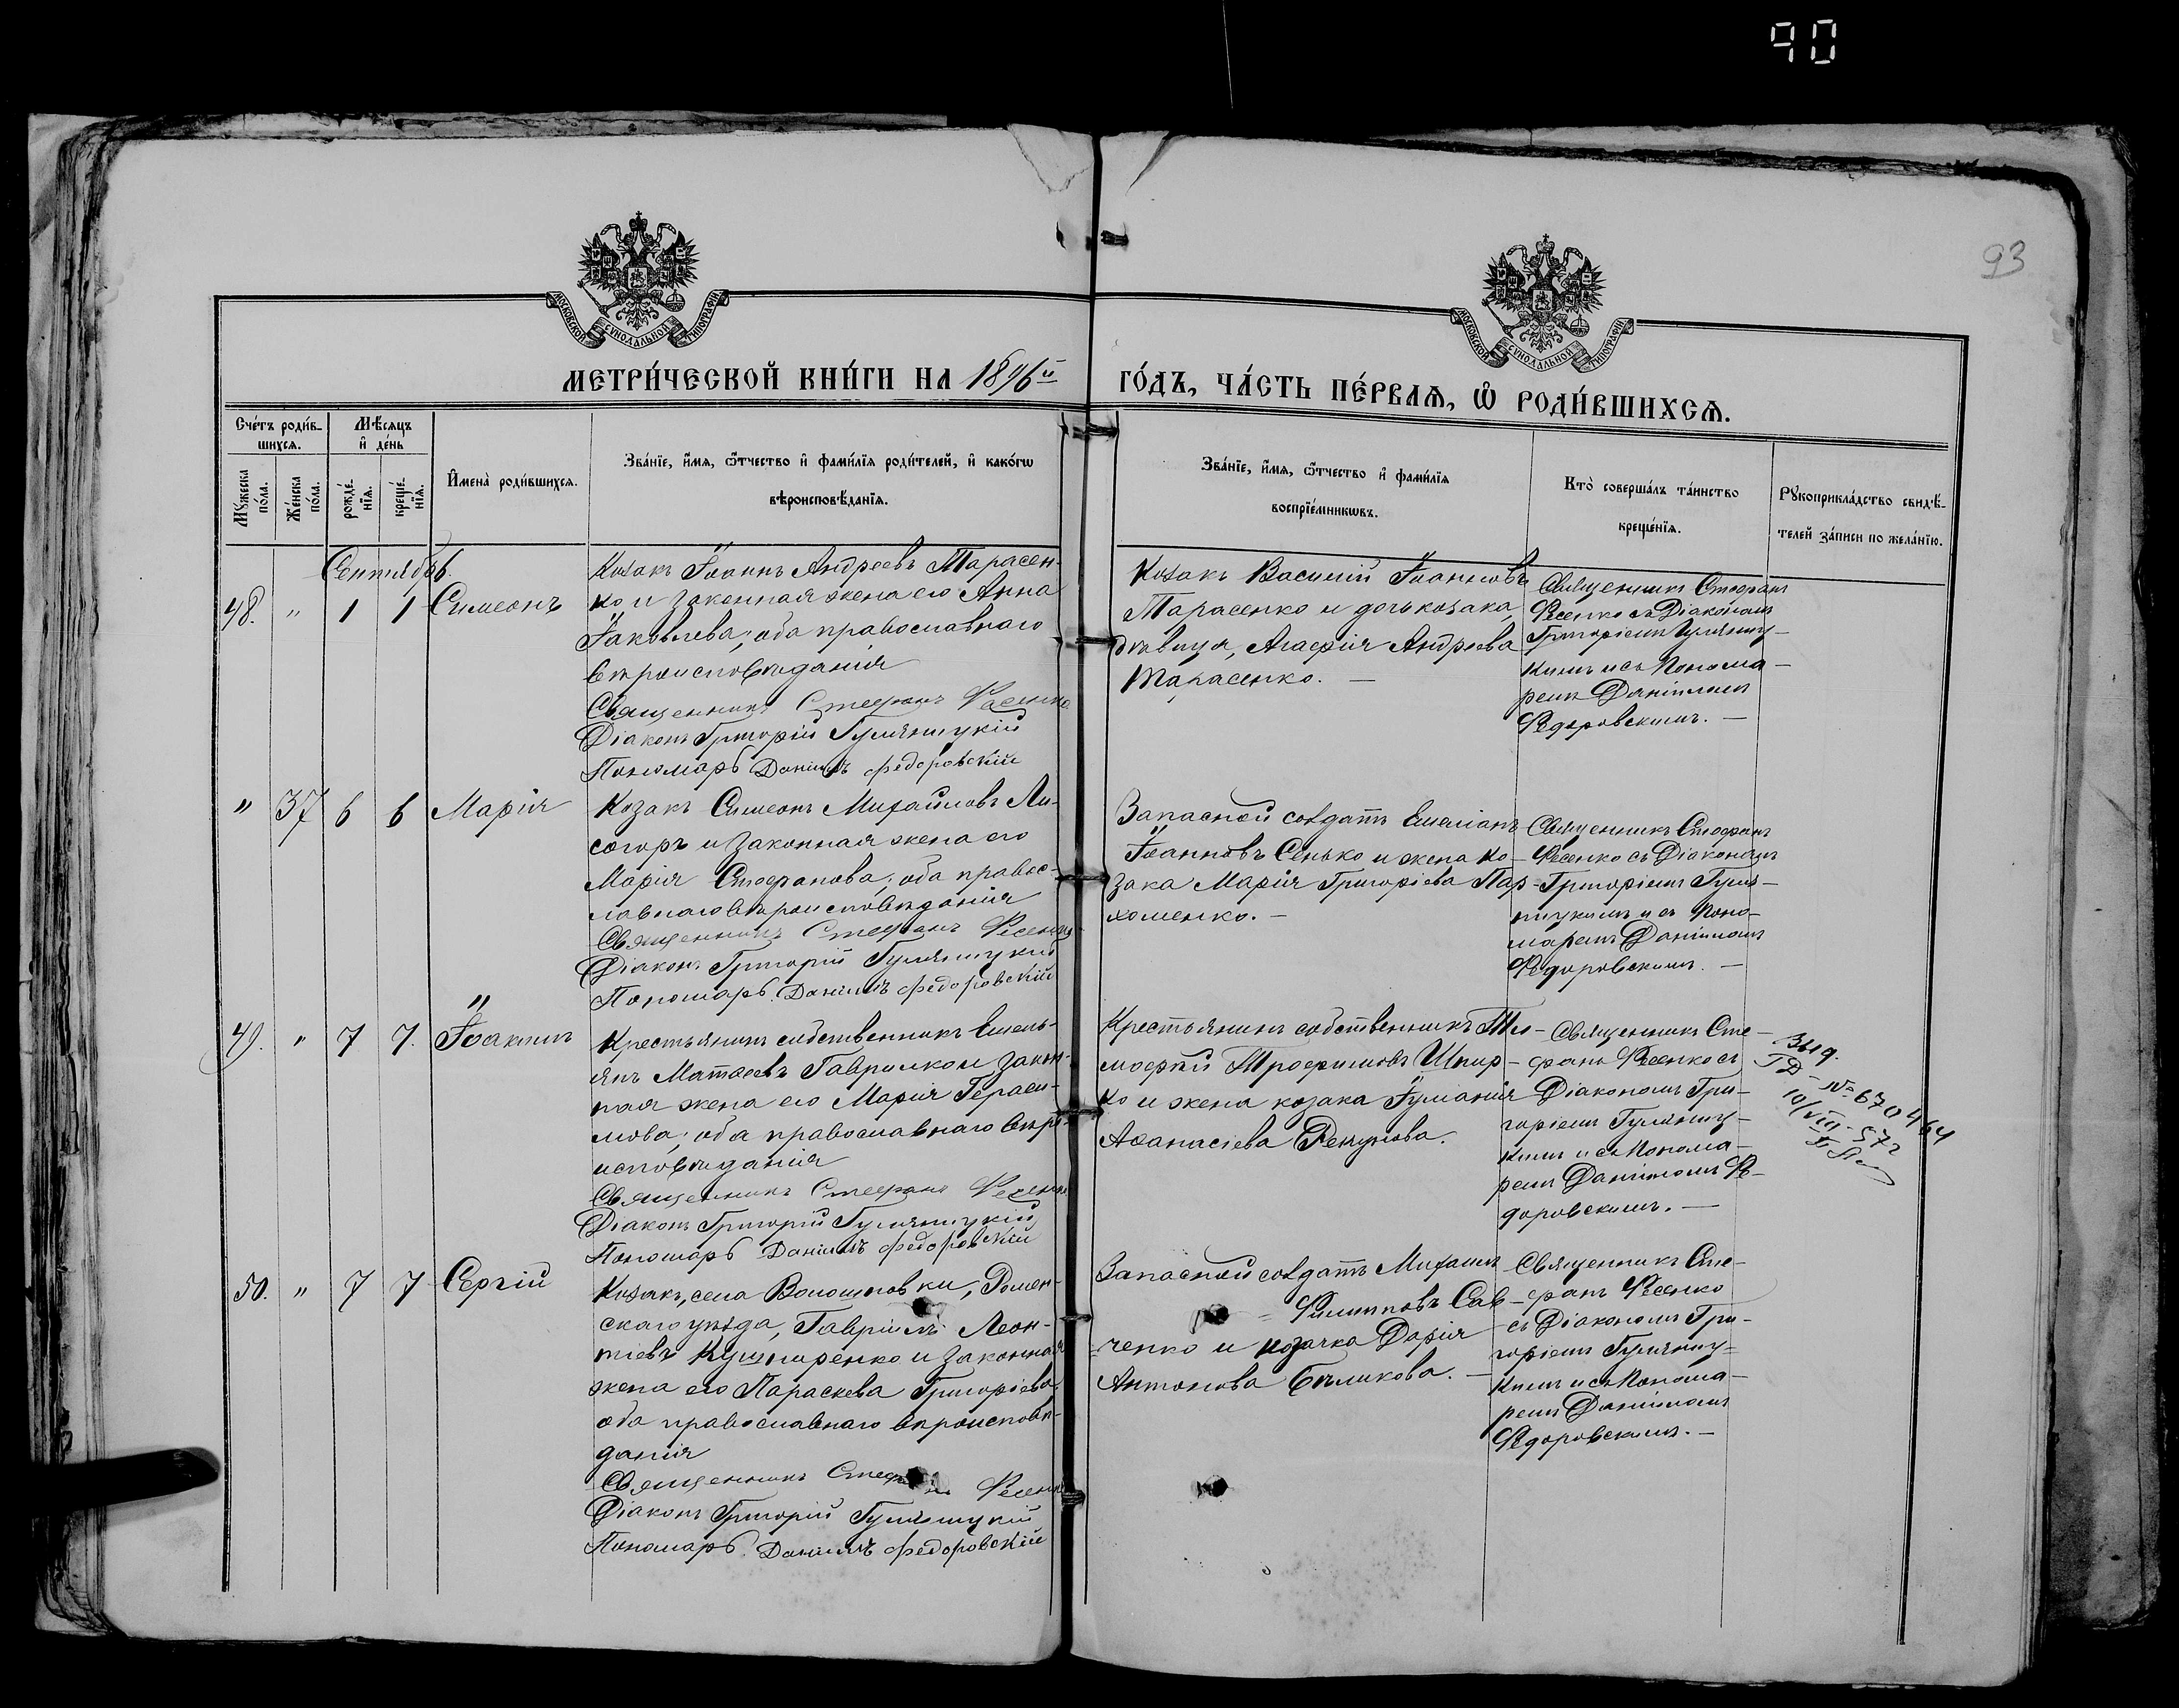 90
93
МОСКОВСКОЙ СѴНОДАЛЬНОЙ ТИПОГРАФІИ
МОСКОВСКОЙ СѴНОДАЛЬНОЙ ТИПОГРАФІИ
МЕТРИ́ЧЕСКОЙ КНИ́ГИ НА 1896й
ГО́ДЪ, ЧА́СТЬ ПЕ́РВАѦ, Ѡ҆ РОДИ́ВШИХСѦ.
Сче́тъ роди́в-
шихсѧ.
Мѣ́сѧцъ
и҆ де́нь
Мꙋ́жеска
по́ла.
Же́нска
по́ла.
рожде́-
нїѧ.
креще́-
нїѧ.
И҆мена̀ роди́вшихсѧ.
Зва́нїе, и҆́мѧ, ѻ҆́тчество и҆ фами́лїѧ роди́телей, и҆ како́гѡ
вѣроисповѣ́данїѧ.
Зва́нїе, и҆́мѧ, ѻ҆́тчество и҆ фами́лїѧ
воспрїе́мникѡвъ.
Кто̀ соверша́лъ та́инство
креще́нїѧ.
Рꙋкоприкла́дство свидѣ́-
телей за́писи по жела́нїю.
Сентябрь
48. " 1 1 Симеонъ
Козакъ Іоаннъ Андреевъ Тарасен-
ко и законная жена его Анна
Іаковлева; оба православнаго
вѣроисповѣданія
Священникъ Стефанъ Фесенко
Діаконъ Григорій Гуляницкій
Пономарь Даніилъ Федоровскій
Козакъ Василій Іоанновъ
Тарасенко и дочь козака,
дѣвица, Агафія Андреева
Тарасенко. —
Священникъ Стефанъ
Фесенко съ Діакономъ
Григоріемъ Гуляниц-
кимъ и съ Понома-
ремъ Даніиломъ
Федоровскимъ. —
" 37 6 6 Марія
Козакъ Симеонъ Михайловъ Ли-
согоръ и законная жена его
Марія Стефанова; оба правос-
лавнаго вѣроисповѣданія
Священникъ Стефанъ Фесенко
Діаконъ Григорій Гуляницкій
Пономарь Даніилъ Федоровскій
Запасной солдатъ Емеліанъ
Іоанновъ Сенько и жена ко-
зака Марія Григоріева Пар-
хоменко. —
Священникъ Стефанъ
Фесенко съ Діакономъ
Григоріемъ Гуля-
ницкимъ и съ Поно-
маремъ Даніиломъ
Федоровскимъ. —
49. " 7 7. Іоакимъ
Крестьянинъ собственникъ Емель-
янъ Матѳеевъ Гаврилко и закон-
ная жена его Марія Гераси-
мова; оба православнаго вѣро-
исповѣданія
Священникъ Стефанъ Фесенко
Діаконъ Григорій Гуляницкій
Пономарь Даніилъ Федоровскій
Крестьянинъ собственникъ Ти-
мофѣй Трофимовъ Шпир-
ко и жена козака Іуліанія
Аѳанасіева
Священникъ Сте-
фанъ Фесенко съ
Діакономъ Гри-
горіемъ Гуляниц-
кимъ и съ Понома-
ремъ Даніиломъ Фе-
доровскимъ. —
№ 670464
10/VIII-57г
50. " 7 7 Сергій
Козакъ, села Волошновки, Ромен-
скаго уѣзда, Гавріилъ Леон-
тіевъ Кушниренко и законная
жена его Параскева Григоріева;
оба православнаго вѣроисповѣ-
данія
Священникъ Стефанъ Фесенко
Діаконъ Григорій Гуляницкій
Пономарь Даніилъ Федоровскій
Запасной солдатъ Михаилъ
Филипповъ Сав-
ченко и козачка Дарія
Антонова Бѣликова. —
Священникъ Сте-
фанъ Фесенко
съ Діакономъ Гри-
горіемъ Гуляниц-
кимъ и съ Понома-
ремъ Даніиломъ
Федоровскимъ. —